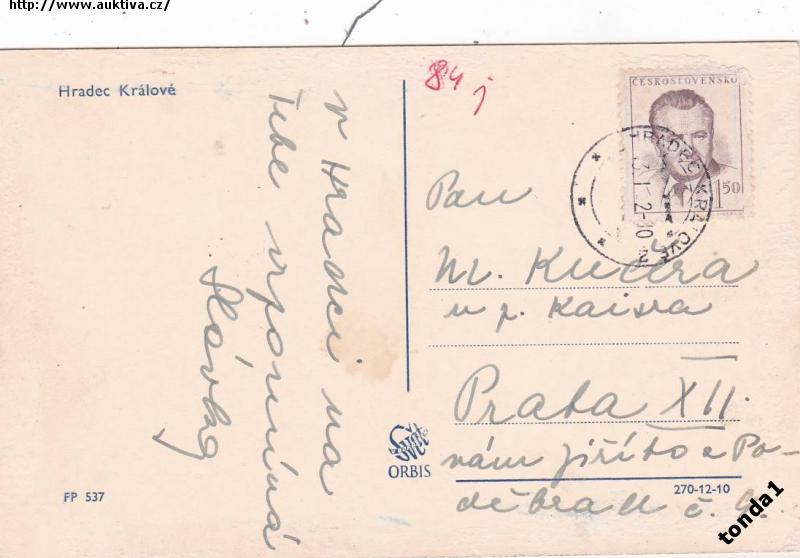 http://www.auktiva.cz/
Hradec Králové
v Hradci na
Tebe vzpomíná
Slávka
84 j
ČESKOSLOVENSKO
1 50
HRADEC KRÁLOVÉ
Pan
Kučera
u p. Kaisra
Praha XII.
nám Jiřího z Po-
děbrad č.
Svět
ORBIS
FP 537
270-12-10
tonda1